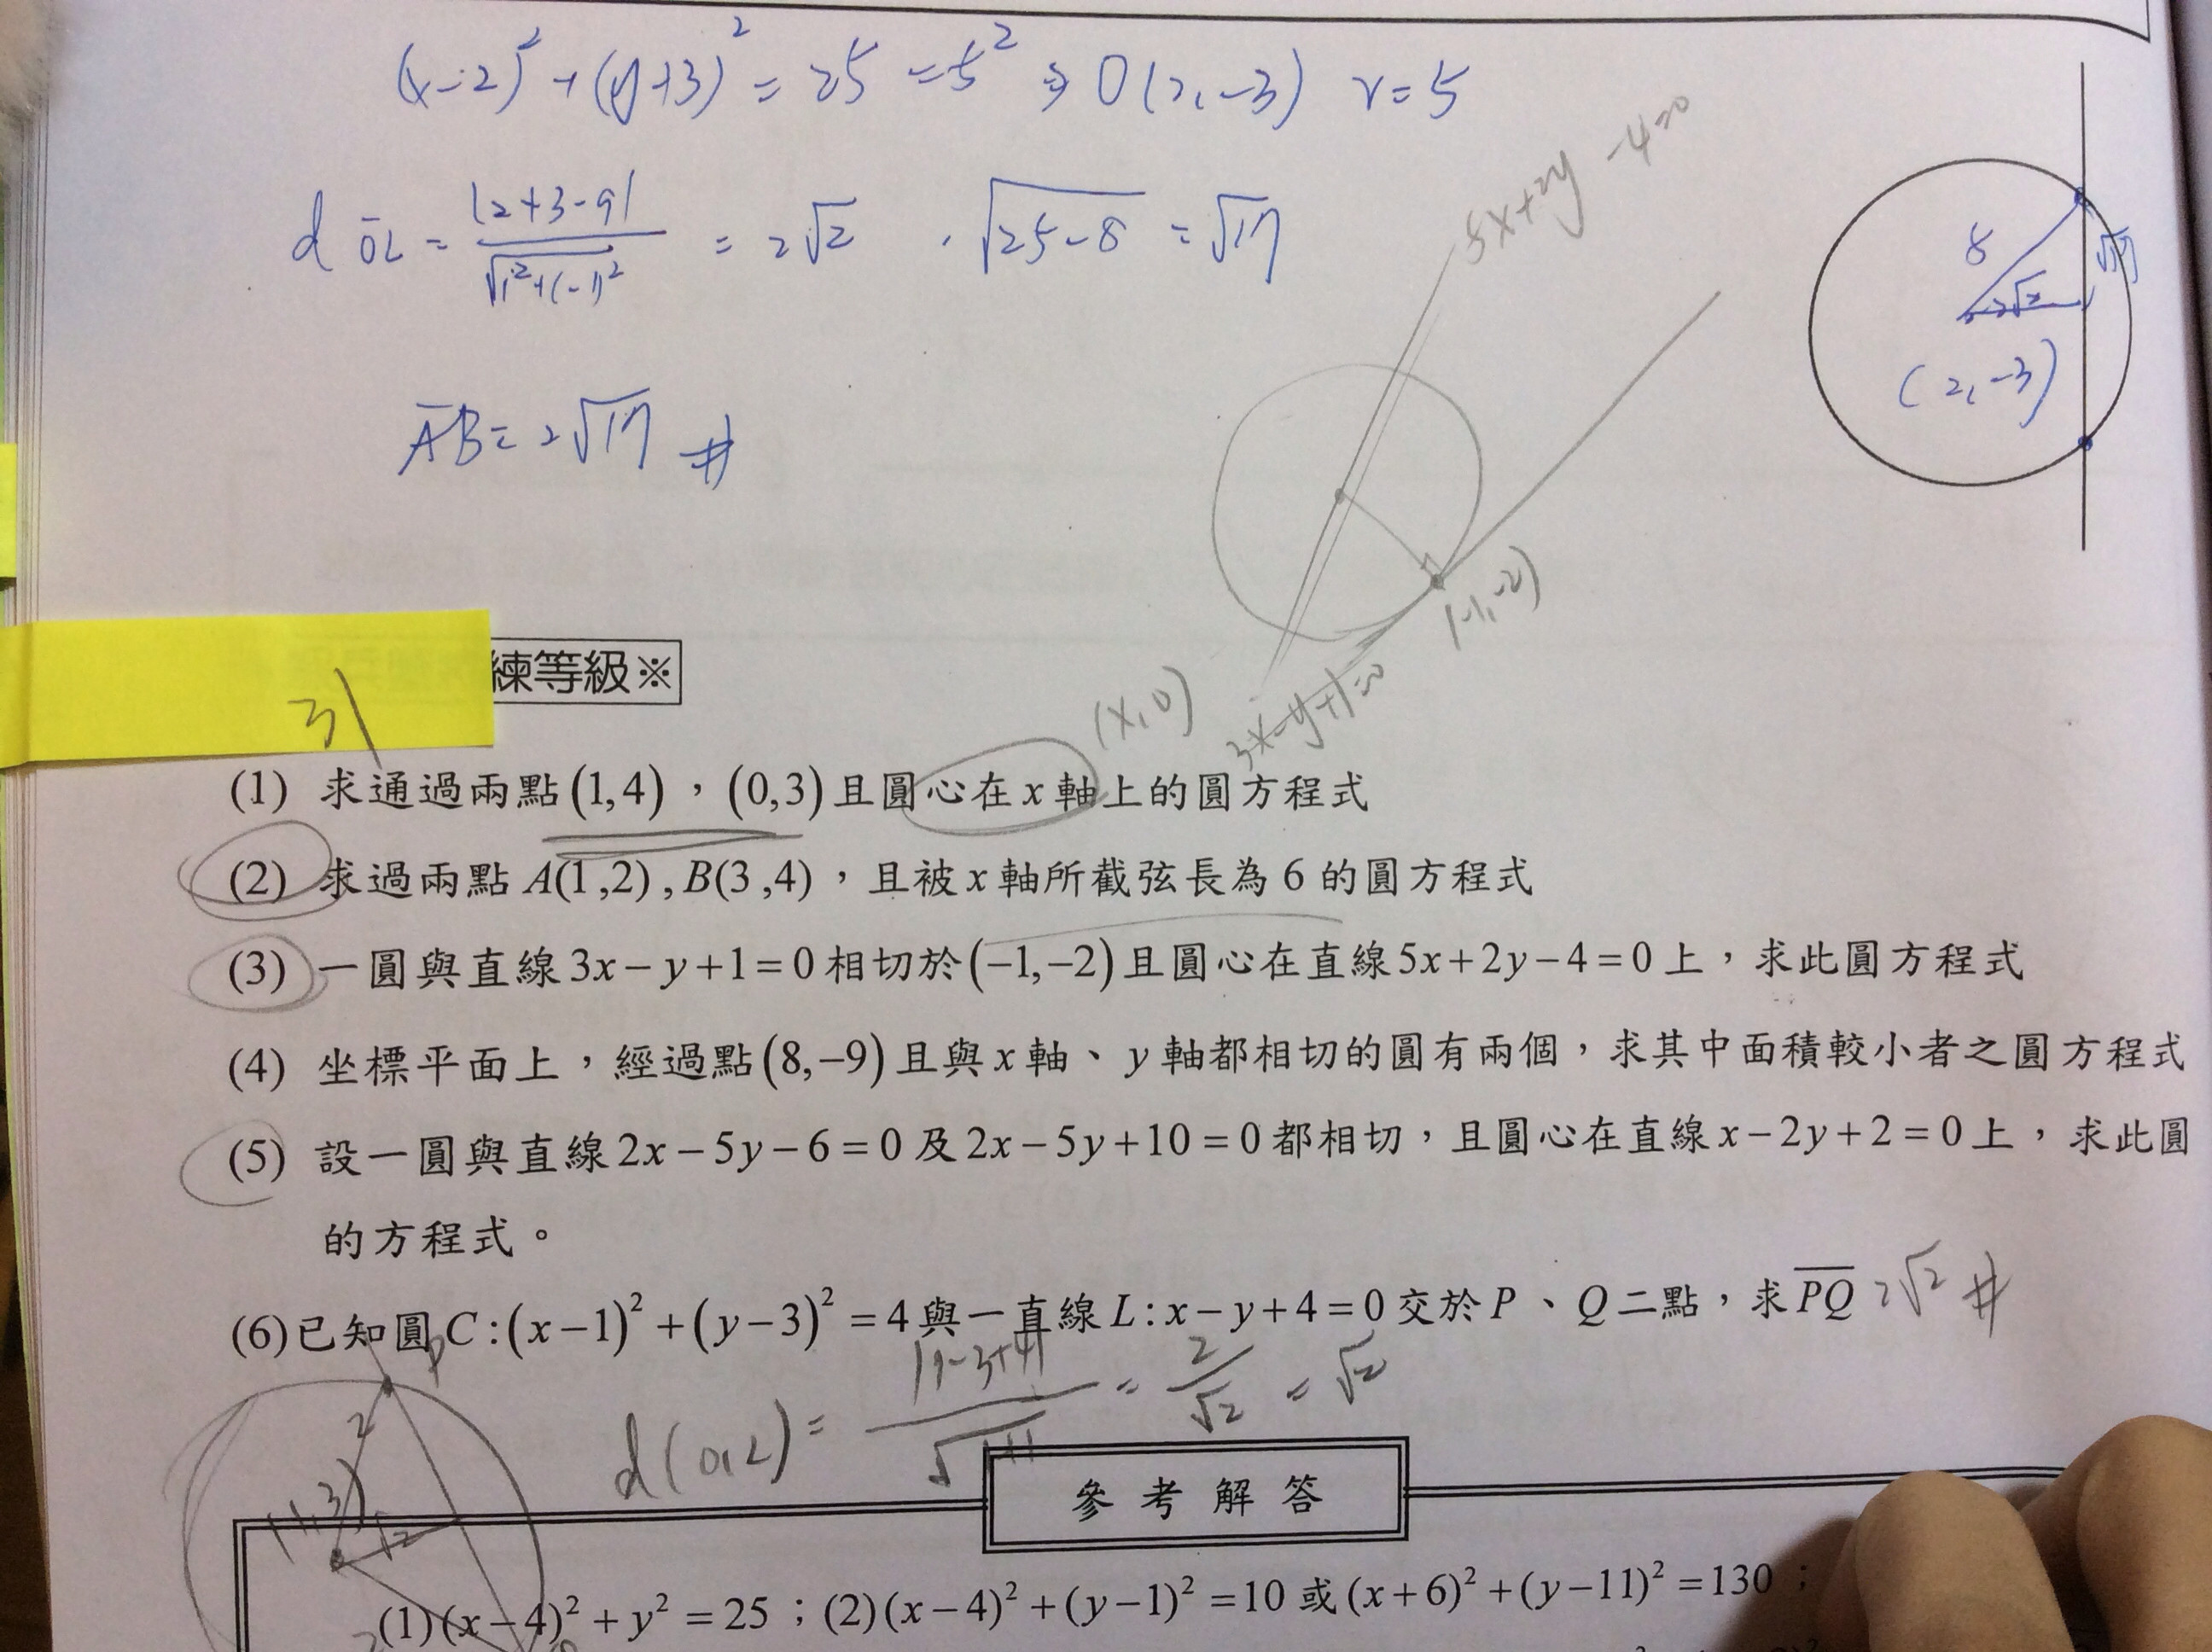 (x-2)²+(y+3)²=25=5² ⇒ O(2,-3) r=5
5x+2y-4=0
d OL = |2+3-9| / √1²+(-1)² = 2√2 . √25-8 = √17
8
√17
2√2
(2,-3)
AB=2√17 #
(-1,-2)
31
練等級※
(x,0)
3x-y+1=0
(1) 求通過兩點(1,4),(0,3)且圓心在x軸上的圓方程式
(2) 求過兩點A(1,2),B(3,4),且被x軸所截弦長為6的圓方程式
(3) 一圓與直線3x-y+1=0相切於(-1,-2)且圓心在直線5x+2y-4=0上,求此圓方程式
(4) 坐標平面上,經過點(8,-9)且與x軸、y軸都相切的圓有兩個,求其中面積較小者之圓方程式
(5) 設一圓與直線2x-5y-6=0及2x-5y+10=0都相切,且圓心在直線x-2y+2=0上,求此圓
的方程式。
(6)已知圓C:(x-1)²+(y-3)²=4與一直線L:x-y+4=0交於P、Q二點,求PQ 2√2 #
P
d(O,L)= |1-3+4| / √1+1 = 2/√2 = √2
2
(1,3)
√2
參考解答
(1)(x-4)²+y²=25;(2)(x-4)²+(y-1)²=10或(x+6)²+(y-11)²=130;
2